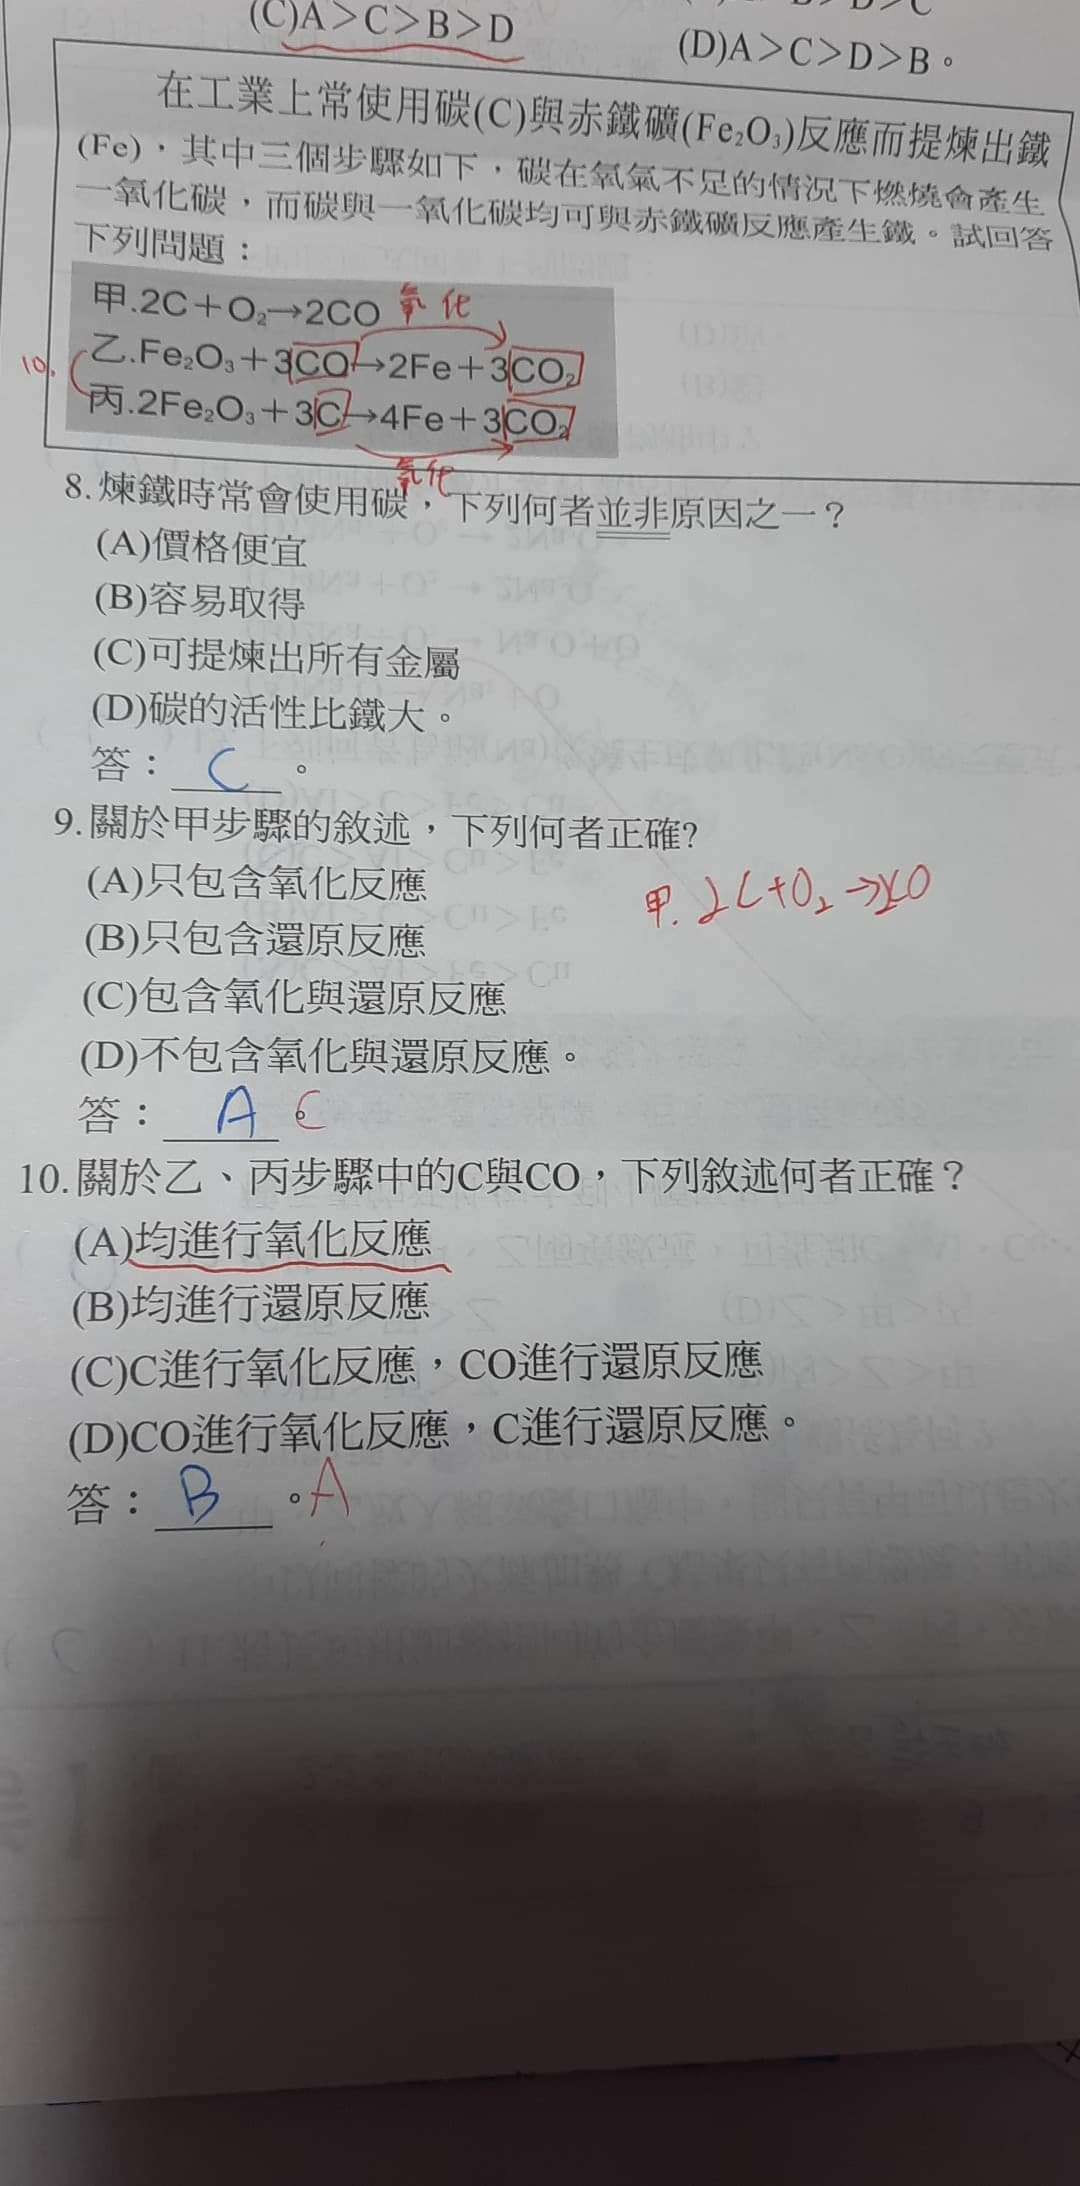 (C)A＞C＞B＞D
(D)A＞C＞D＞B。
在工業上常使用碳(C)與赤鐵礦(Fe₂O₃)反應而提煉出鐵
(Fe)，其中三個步驟如下，碳在氧氣不足的情況下燃燒會產生
一氧化碳，而碳與一氧化碳均可與赤鐵礦反應產生鐵。試回答
下列問題：
甲.2C＋O₂→2CO 氧化
10. 乙.Fe₂O₃＋3CO→2Fe＋3CO₂
丙.2Fe₂O₃＋3C→4Fe＋3CO₂
氧化
8.煉鐵時常會使用碳，下列何者並非原因之一？
(A)價格便宜
(B)容易取得
(C)可提煉出所有金屬
(D)碳的活性比鐵大。
答：C。
9.關於甲步驟的敘述，下列何者正確?
(A)只包含氧化反應
甲. 2C+O₂→2CO
(B)只包含還原反應
(C)包含氧化與還原反應
(D)不包含氧化與還原反應。
答：A。C
10.關於乙、丙步驟中的C與CO，下列敘述何者正確？
(A)均進行氧化反應
(B)均進行還原反應
(C)C進行氧化反應，CO進行還原反應
(D)CO進行氧化反應，C進行還原反應。
答：B。A